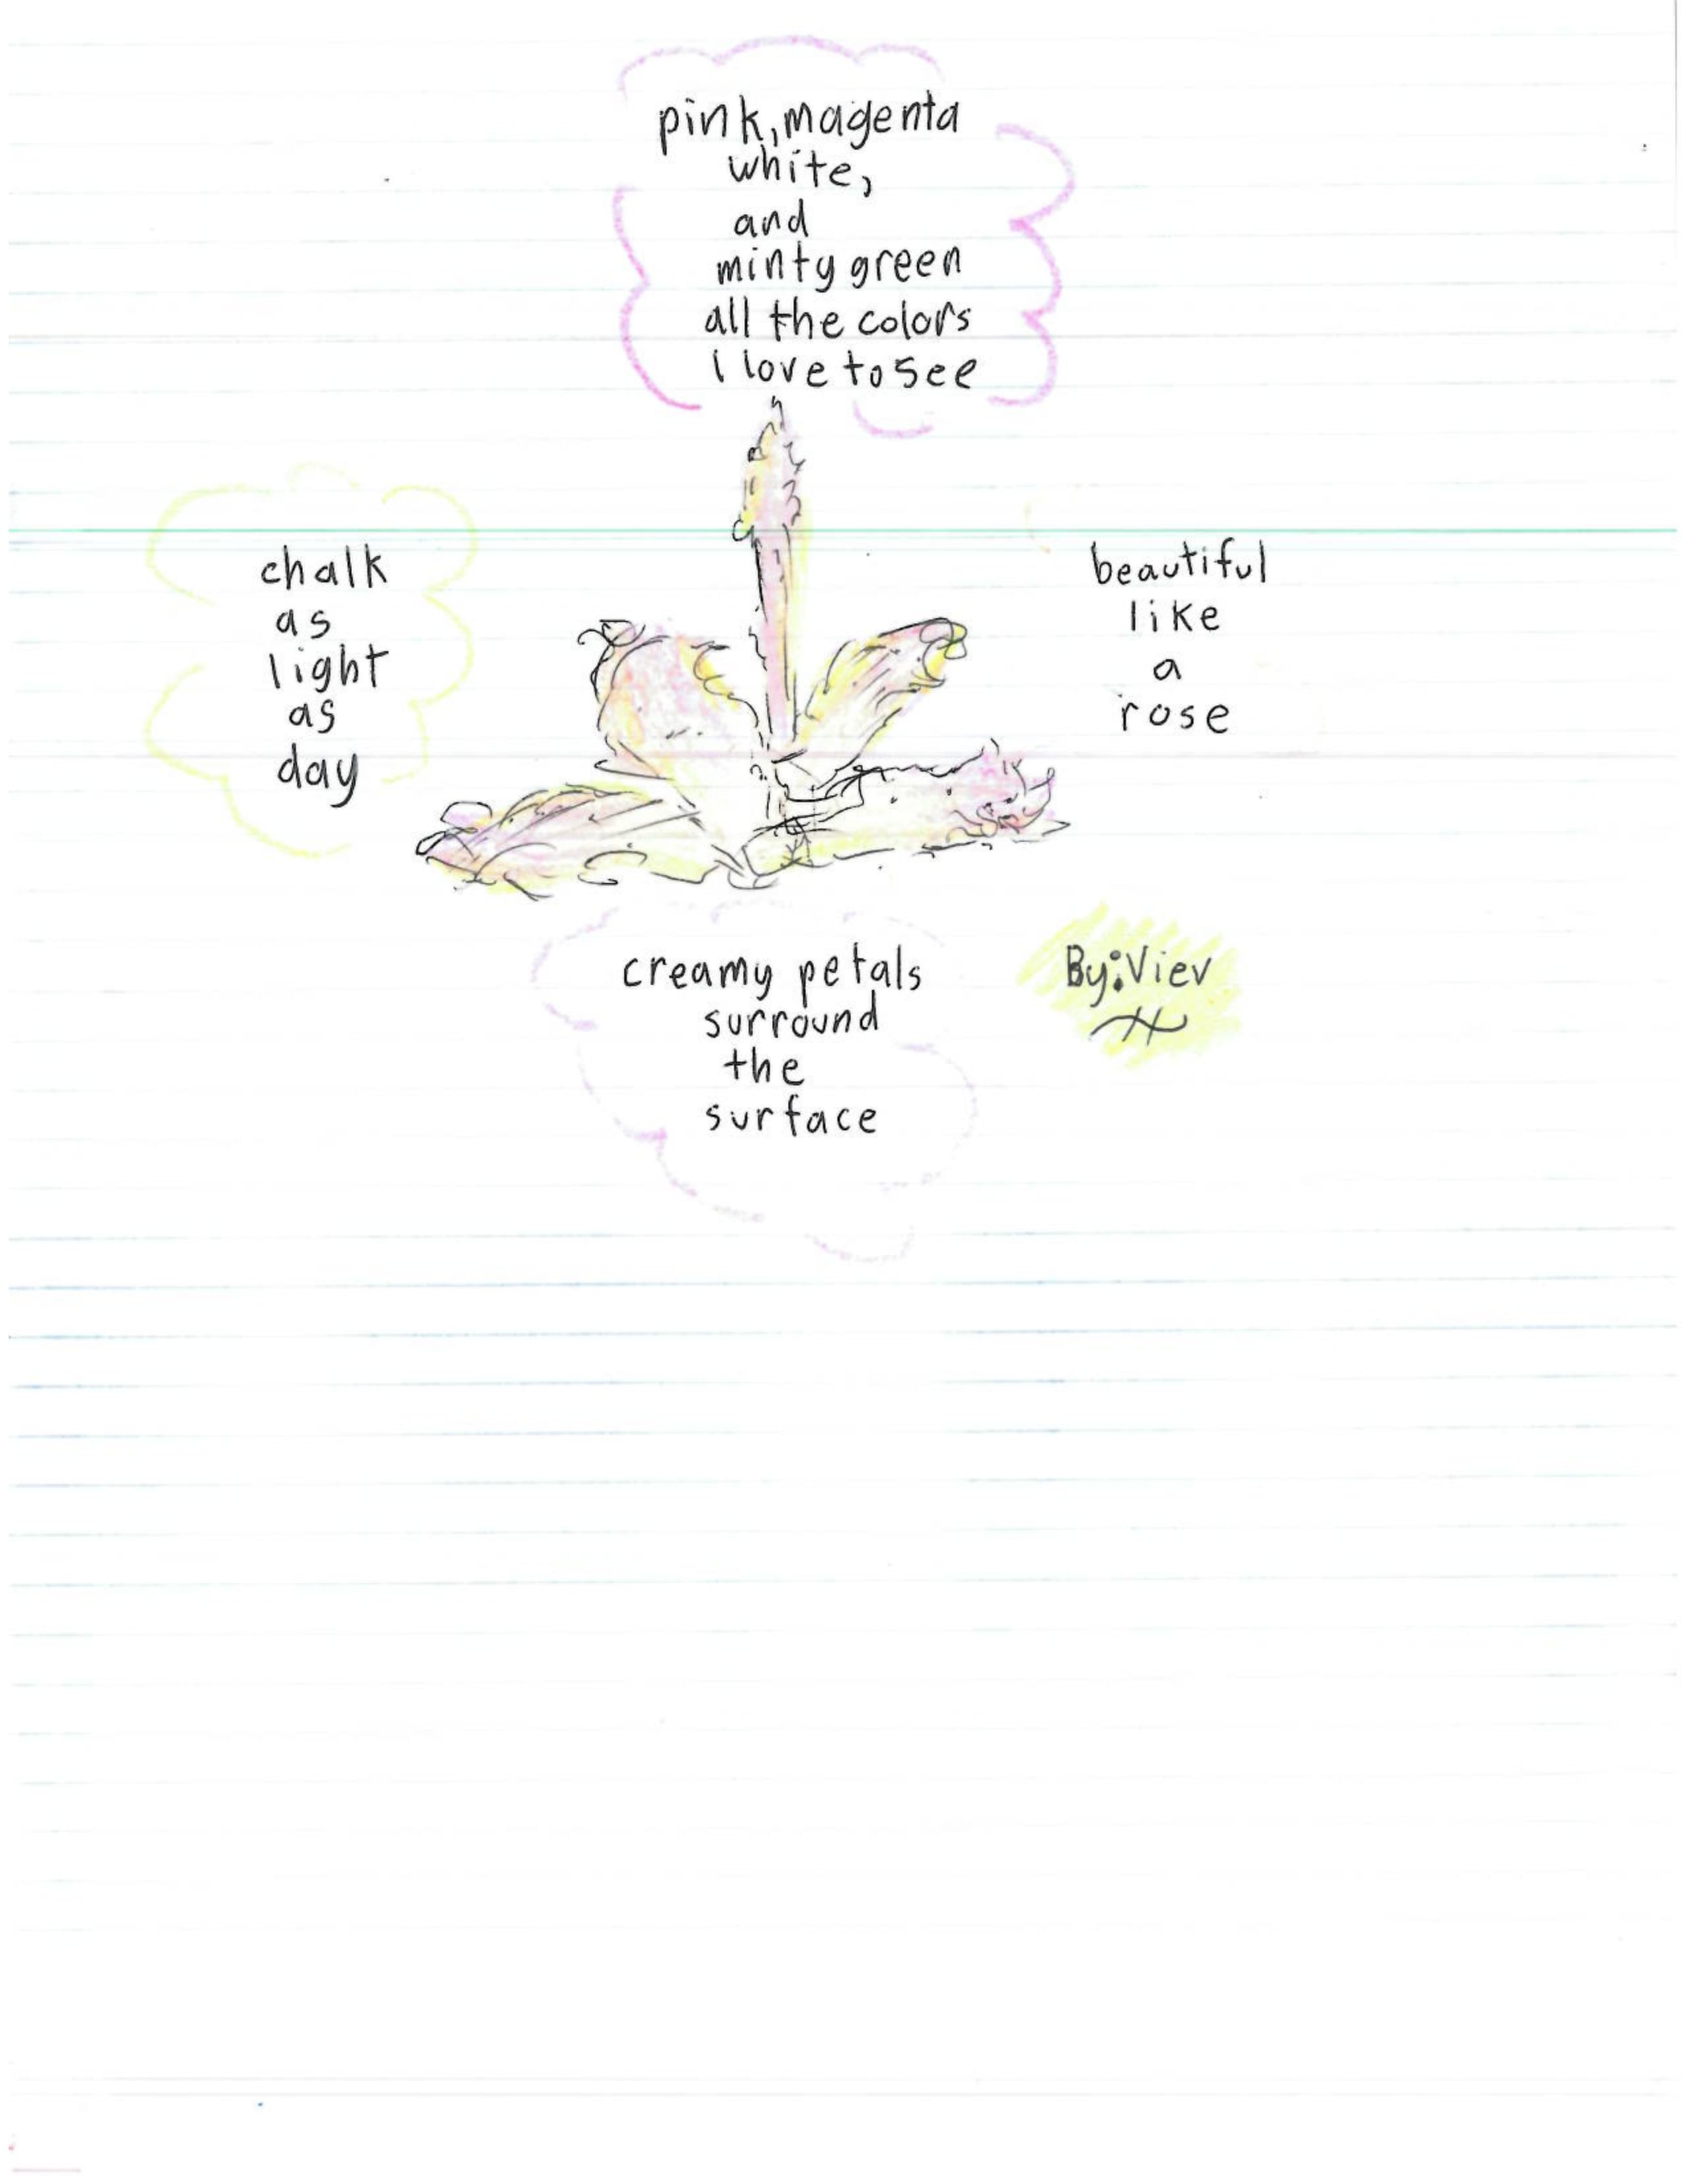 pink, magenta
white,
and
minty green
all the colors
i love to see
chalk
as
light
as
day
beautiful
like
a
rose
creamy petals
surround
the
surface
By: Viev